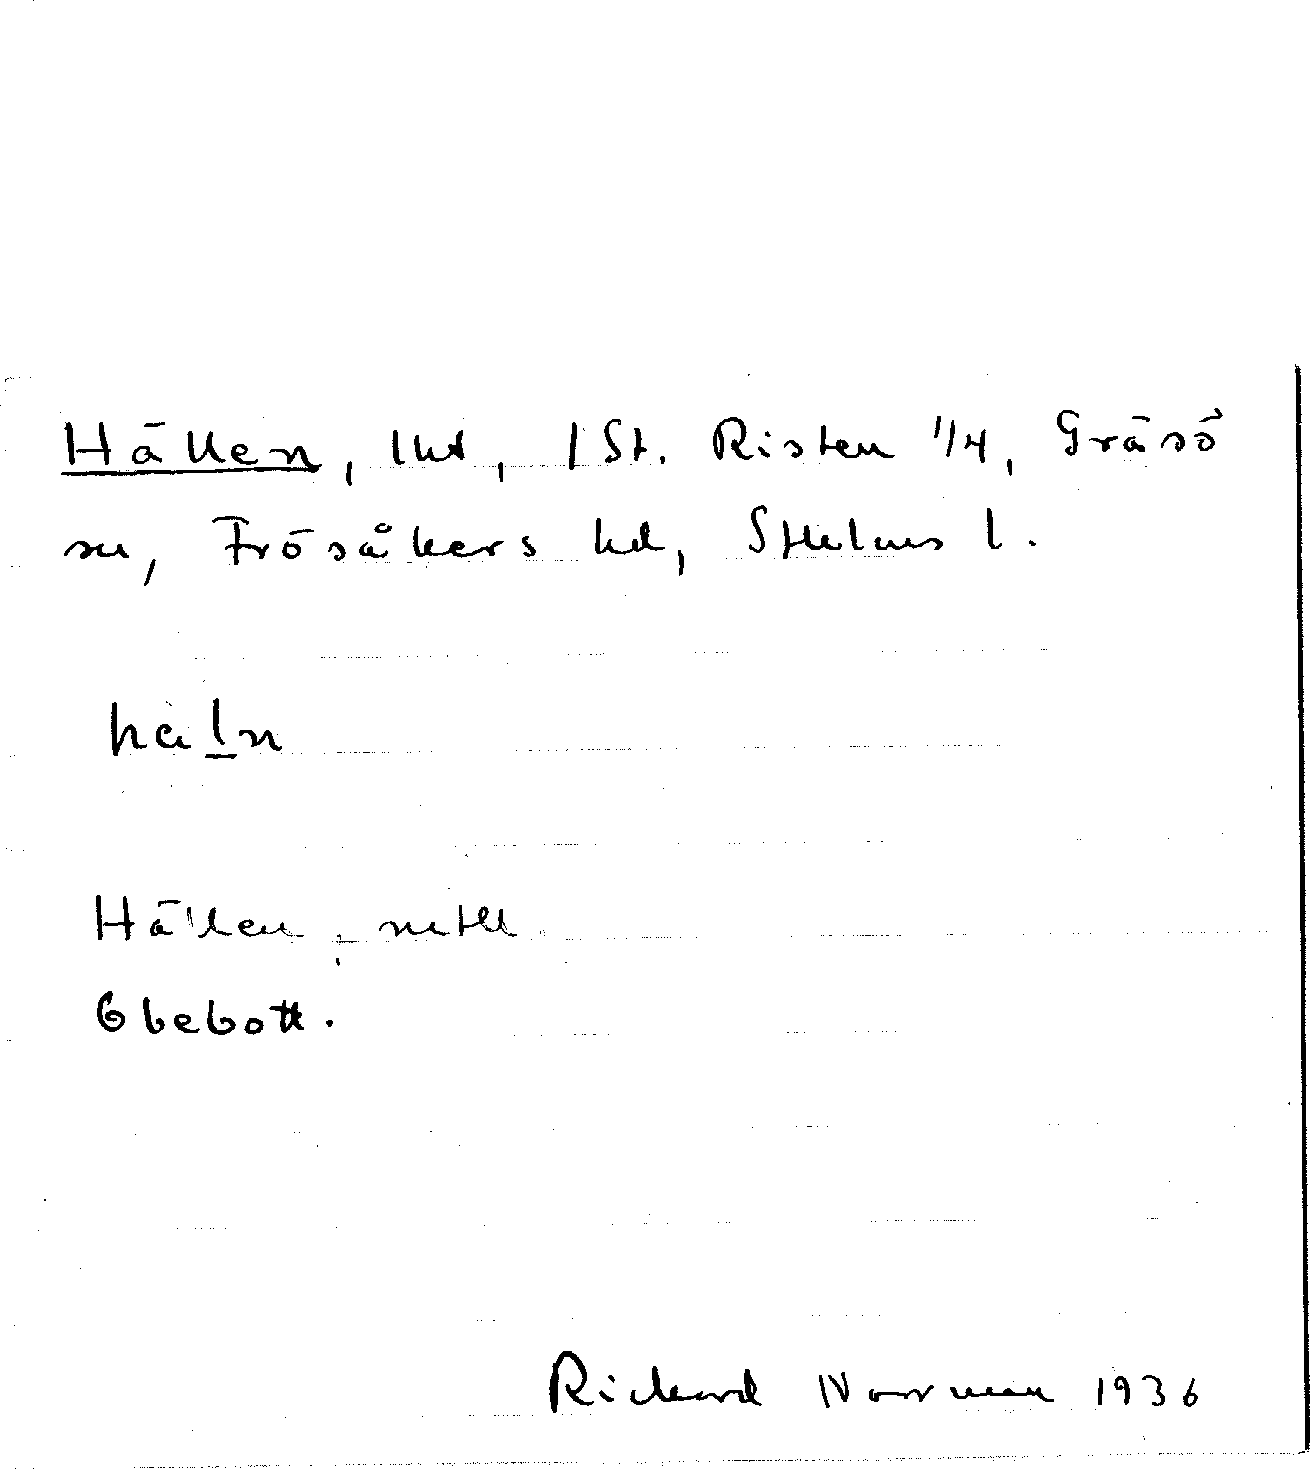 Hällen, lht, 1 St. Risten 1/4, Gräsö
sn, Frösåkers hd, Sthlms l.
häln
Hällen
Obebott.
Rickard Norrman 1936